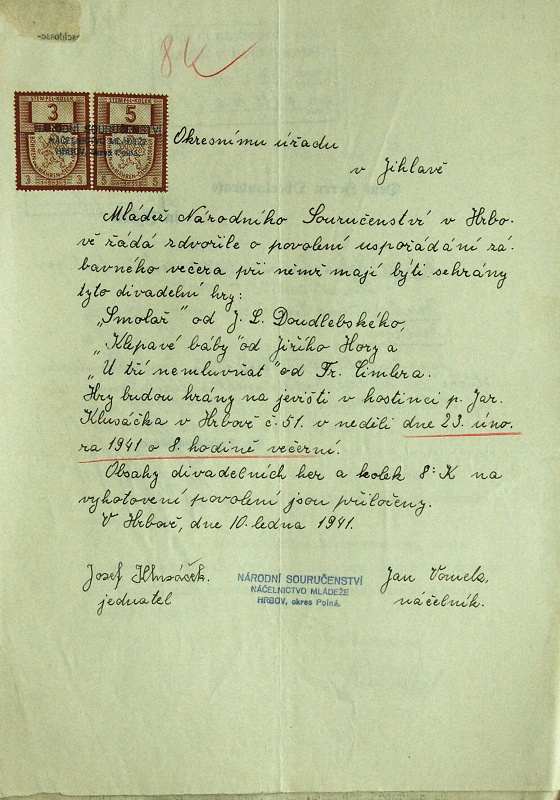 8K
STEMPEL-KOLEK STEMPEL-KOLEK
3 5
NÁRODNÍ SOURUČENSTVÍ
NÁČELNICTVO MLÁDEŽE
HRBOV, okres Polná.
3 3 5 5
Okresnímu úřadu
v Jihlavě
Mládež Národního Souručenství v Hrbo-
vě žádá zdvořile o povolení uspořádání zá-
bavného večera při němž mají býti sehrány
tyto divadelní hry:
„Smolař" od J. L. Doudlebského,
„Klepavé báby" od Jiřího Hory a
„U tří nemluvňat" od Fr. Cimlera.
Hry budou hrány na jevišti v hostinci p. Jar.
Klusáčka v Hrbově č. 51. v neděli dne 23. úno-
ra 1941 o 8. hodině večerní.
Obsahy divadelních her a kolek 8·K na
vyhotovení povolení jsou přiloženy.
V Hrbově, dne 10. ledna 1941.
Josef Klusáček.
jednatel
NÁRODNÍ SOURUČENSTVÍ
NÁČELNICTVO MLÁDEŽE
HRBOV, okres Polná.
Jan
náčelník.